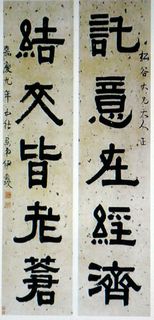 松谷大兄大人正
託意在經濟
結交皆老蒼
嘉慶九年 伊秉綬